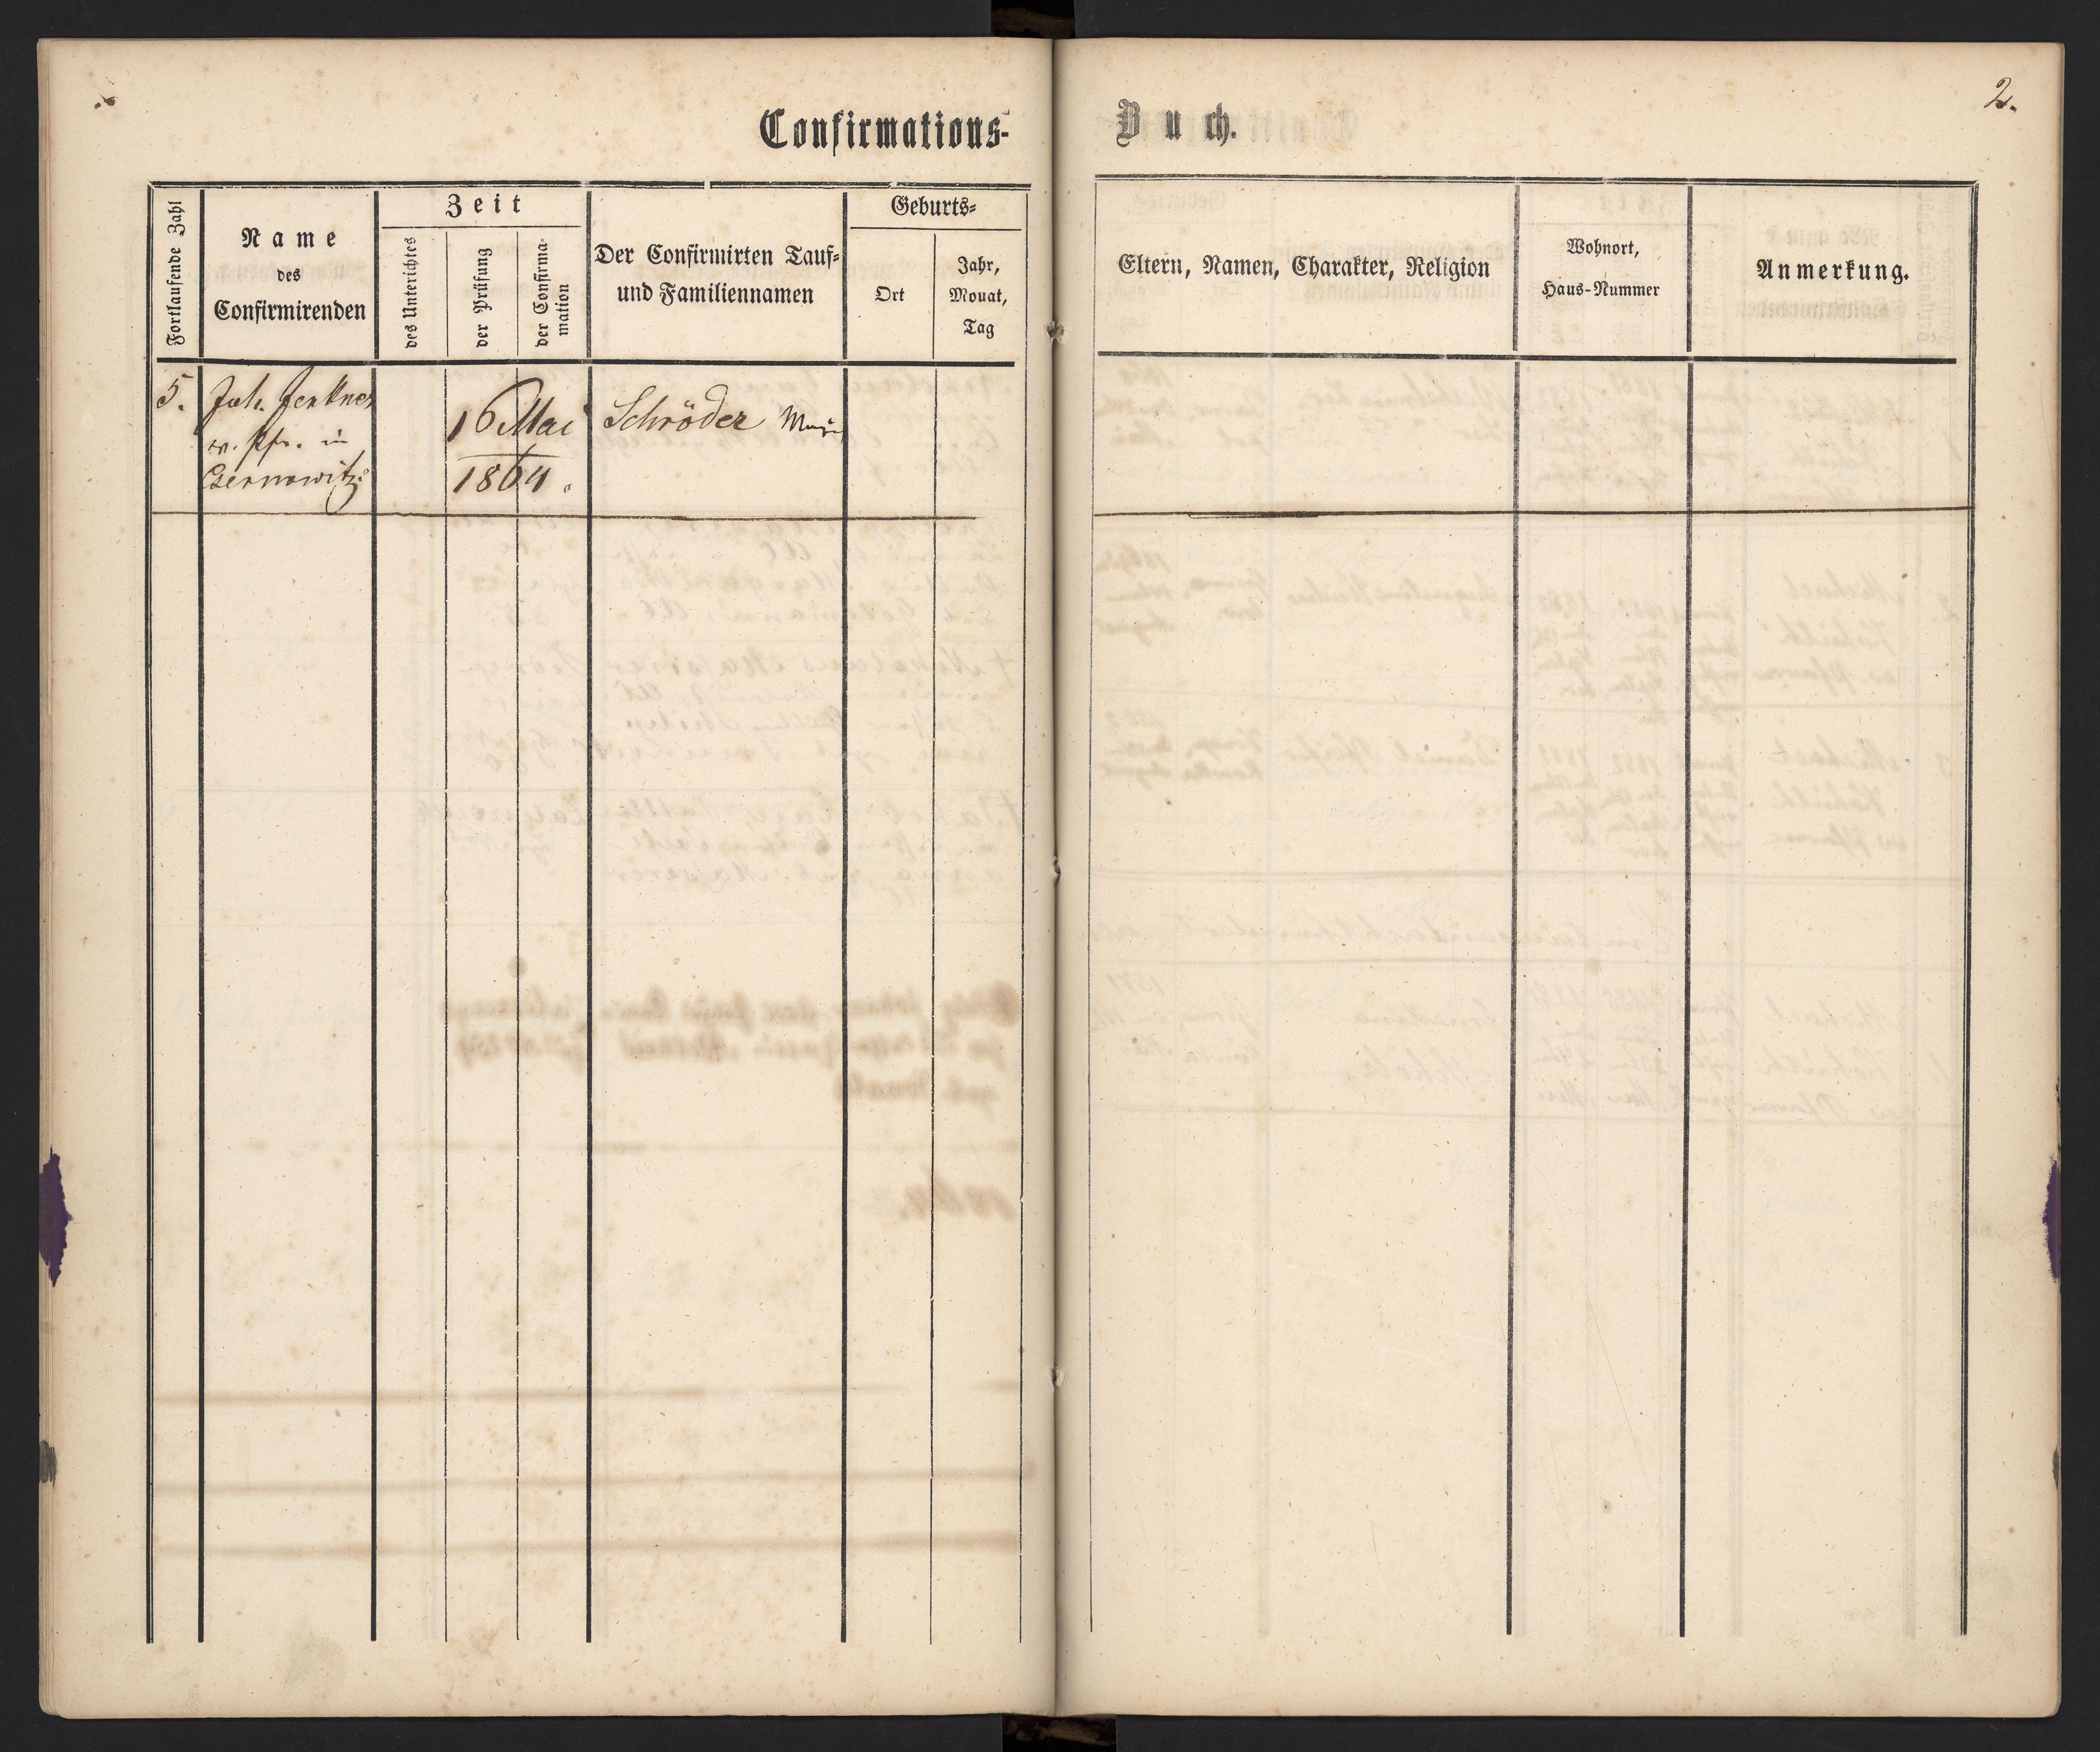 Confirmations-
Buch.
2.
Fortlaufende Zahl
Name
des
Confirmirenden
Zeit
des Unterichtes
der Prüfung
der Confirma-
mation
Der Confirmirten Tauf-
und Familiennamen
Geburts-
Ort
Jahr,
Monat,
Tag
Eltern, Namen, Charakter, Religion
Wohnort,
Haus-Nummer
Anmerkung.
5.
Joh. Jenkner
ev. Pfr. in
Czernowitz
16 Mai
1864.
Schröder